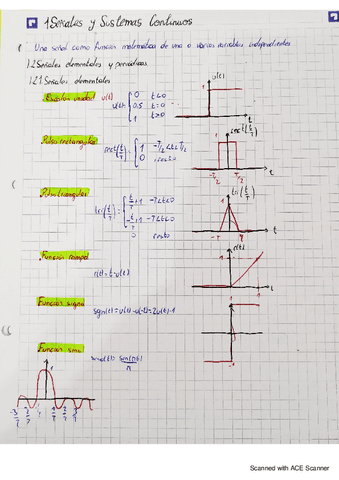 1 Señales y Sistemas Continuos
Una señal como función matemática de una o varias variables independientes
1.2 Señales elementales y periódicas
1.2.1 Señales elementales
Escalón unidad u(t)
u(t)= { 0 t<0
0.5 t=0
1 t>0
u(t)
1
t
Pulso rectangular
rect(t/T)= { 1 -T/2<t<T/2
0 resto
rect(t/T)
-T/2 T/2 t
Pulso triangular
tri(t/T)= { t/T+1 -T<t<0
-t/T+1 -T<t<0
0 resto
tri(t/T)
1
-T T t
Función rampa
r(t)=t·u(t)
r(t)
1
1
Función signo
sgn(t)=u(t)-u(-t)=2u(t)-1
1
-1
Función sinc
Scanned with ACE Scanner